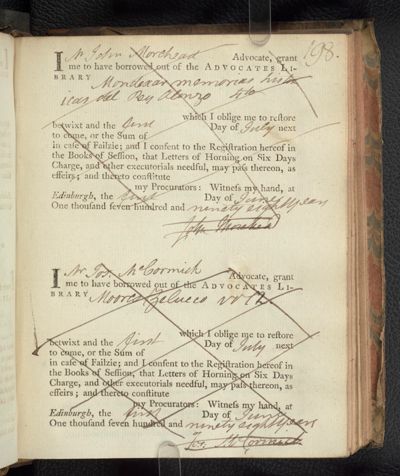 198.
I Mr John Morehead Advocate, grant
me to have borrowed out of the ADVOCATES LI-
BRARY Mondexar memorias histo
ricas del Rey Alonzo
which I oblige me to restore
betwixt and the first Day of July next
to come, or the Sum of
in case of Failzie; and I consent to the Registration hereof in
the Books of Session, that Letters of Horning on Six Days
Charge, and other executorials needful, may pass thereon, as
effeirs; and thereto constitute
my Procurators: Witness my hand, at
Edinburgh, the first Day of June
One thousand seven hundred and ninety eight years
John Morehead
I Mr Jos. McCormick Advocate, grant
me to have borrowed out of the ADVOCATES LI-
BRARY Moores Zelucco
which I oblige me to restore
betwixt and the first Day of July next
to come, or the Sum of
in case of Failzie; and I consent to the Registration hereof in
the Books of Session, that Letters of Horning on Six Days
Charge, and other executorials needful, may pass thereon, as
effeirs; and thereto constitute
my Procurators: Witness my hand, at
Edinburgh, the first Day of June
One thousand seven hundred and ninety eight years
Jos. McCormick